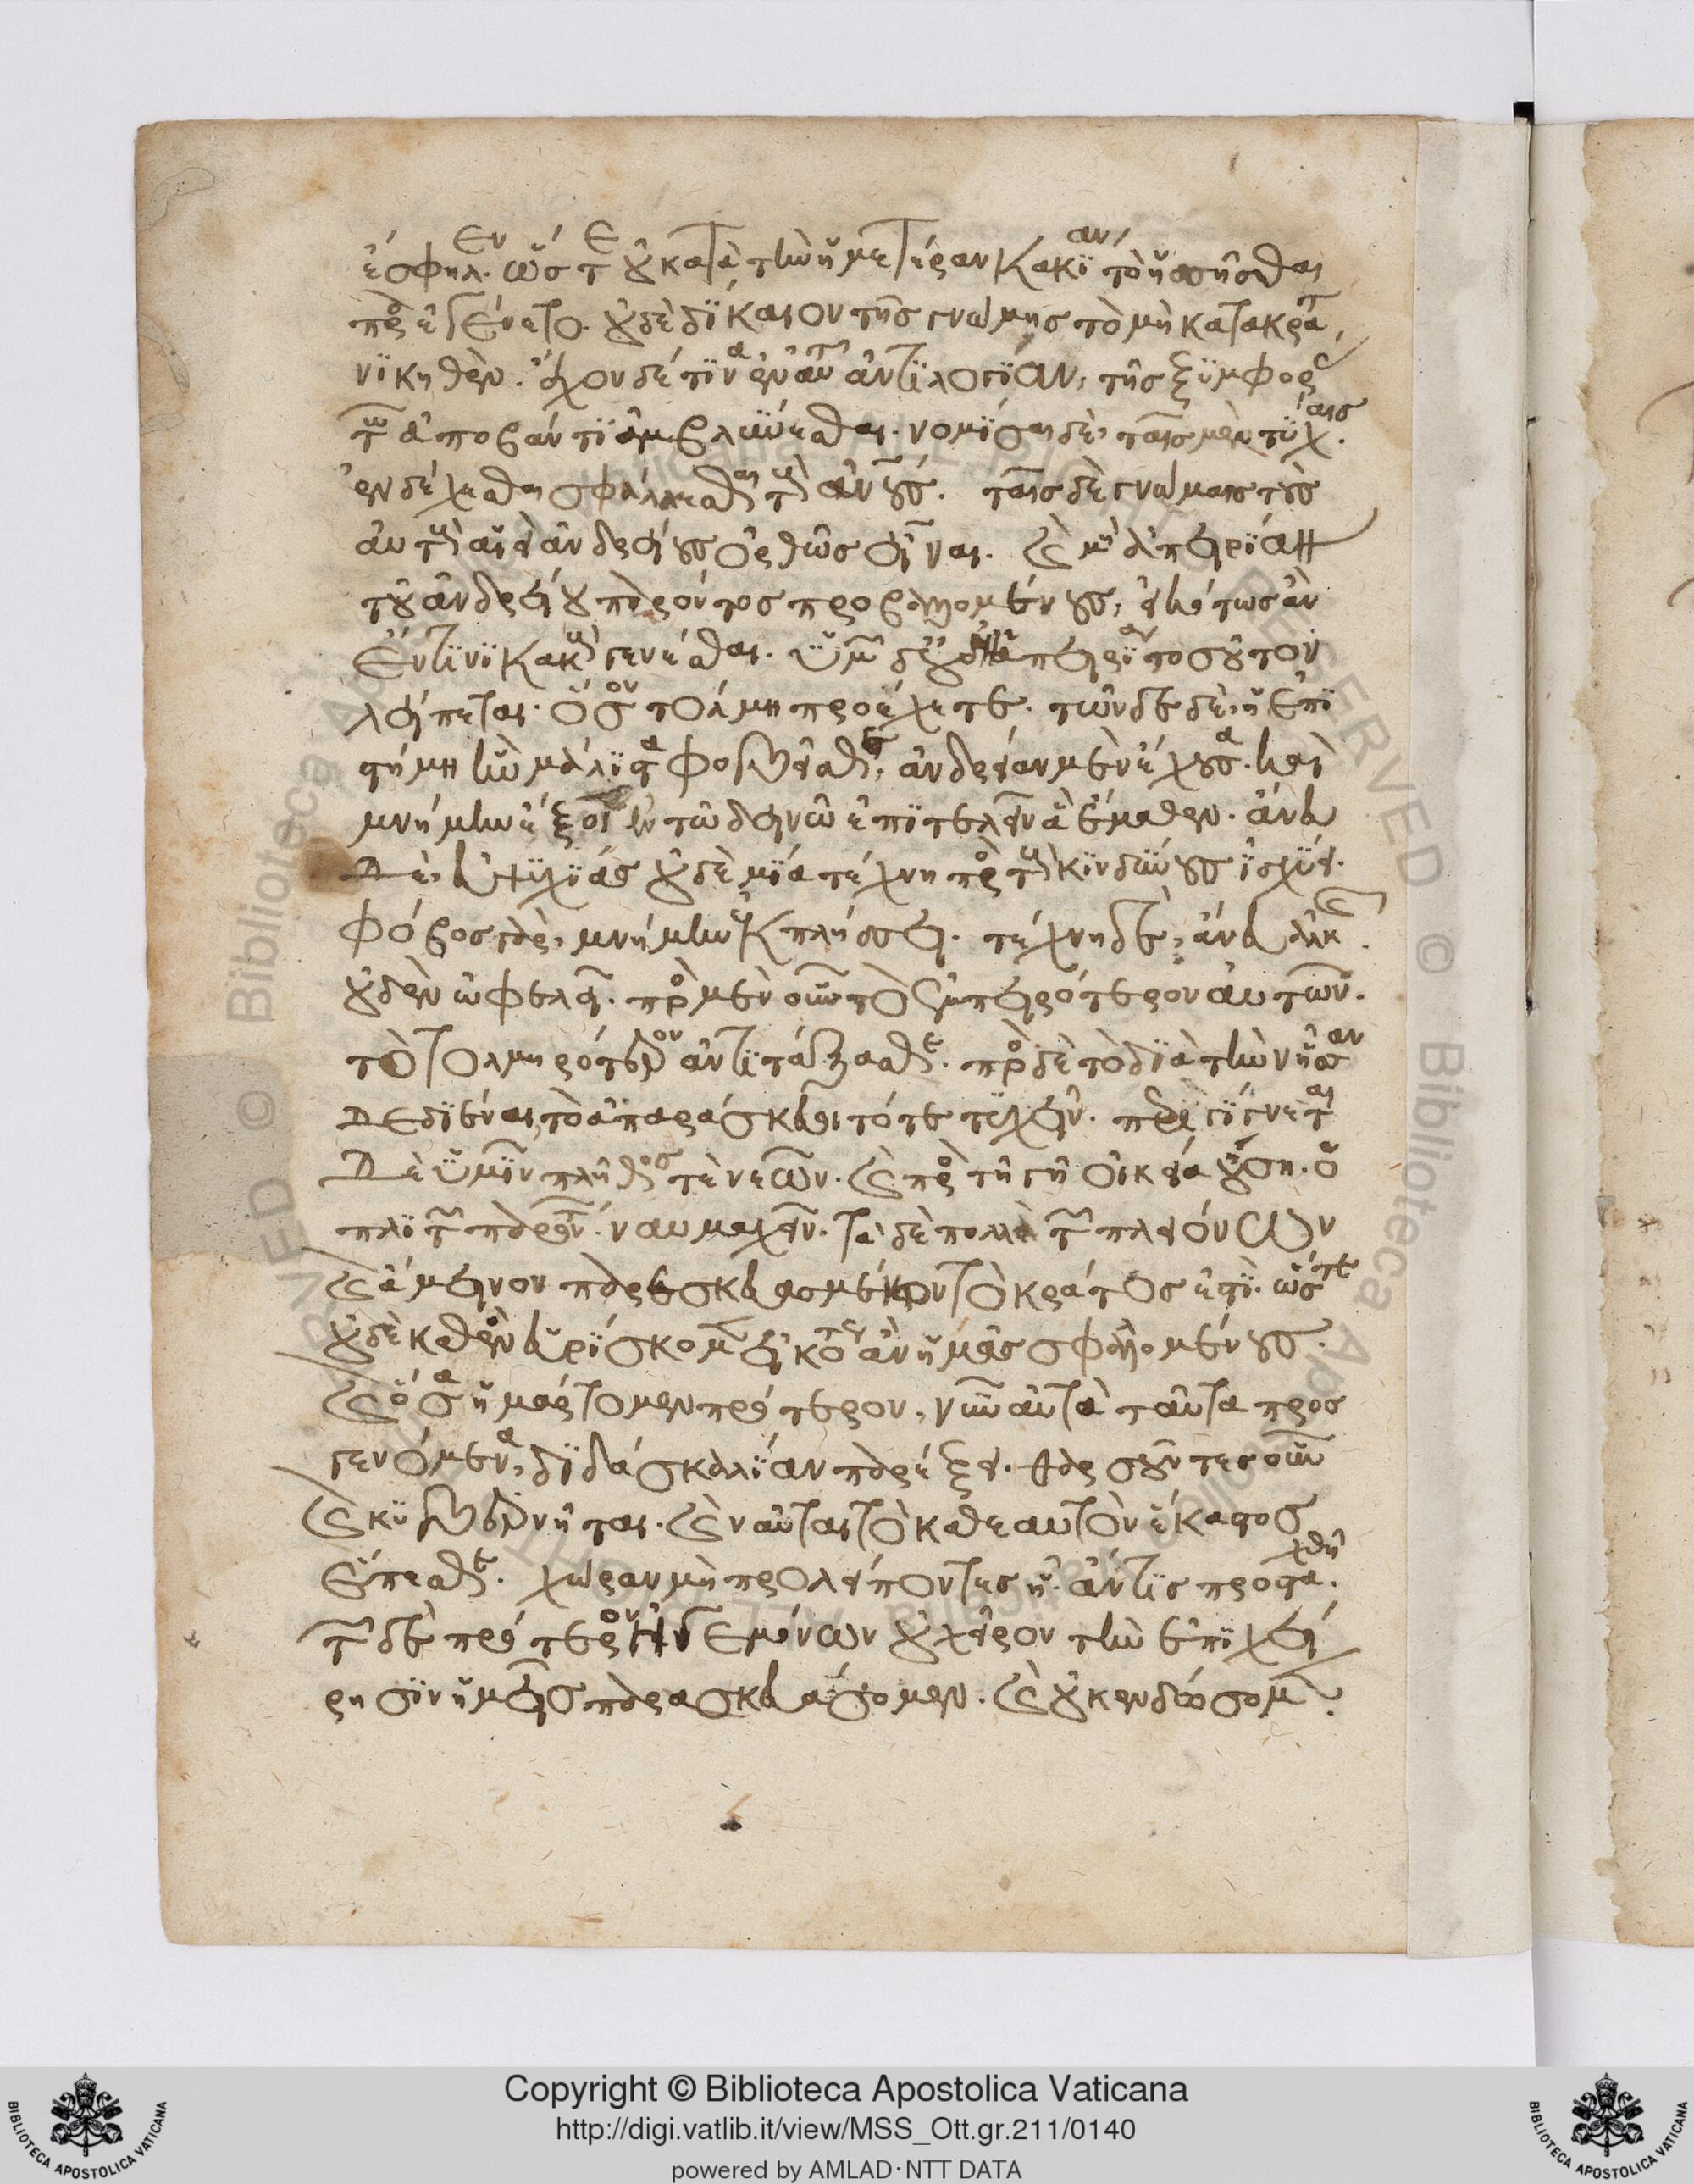 ἔσφηλεν. ὥστε οὐ κατὰ τὴν ἡμετέραν κακίαν τὸ ἡσσῆσθαι
προσεγένετο. οὐδὲ δίκαιον τῆς γνώμης τὸ μὴ κατακράτος
νικηθὲν. ἔχον δέ τινα ἐν αὑτῶ ἀντιλογίαν, τῆς ξυμφορᾶς
τῶ ἀποβάντι ἀμβλύνεσθαι. νομίσαι δὲ, ταῖς μὲν τύχαις.
ἐνδέχεσθαι σφάλλεσθαι τοὺς ἀνους. ταῖς δὲ γνώμαις τοὺς
αὐτοὺς αἰεὶ ἀνδρείους ὀρθῶς εἶναι. καὶ μὴ ἀπειρίαν
τοῦ ἀνδρείου παρόντος προβαλλομένους, εἰκότως ἂν
ἔν τινι κακοὺς γενέσθαι. ὑμῶν δὲ οὐδ' ἡ ἀπειρία τοσοῦτον
λείπεται. ὅσον τόλμη προέχετε. τῶνδε δὲ, ἡ ἐπι
στήμη ἣν μάλιστα φοβεῖσθε, ἀνδρείαν μὲν ἔχουσα. καὶ
μνήμην ἕξει ἐν τῶ δεινῶ ἐπιτελεῖν ἃ ἔμαθεν. ἄνευ
δὲ, εὐψυχίας οὐδὲ μία τέχνη πρὸς τοὺς κινδύνους ἰσχύει.
φόβος γὰρ, μνήμην ἐκπλήσσει. τέχνη δὲ, ἄνευ ἀλκῆς.
οὐδὲν ὠφελεῖ. πρὸς μὲν οὖν τὸ ἐμπειρότερον αὐτῶν.
τὸ τολμηρότερον ἀντιτάξασθε. πρὸς δὲ τὸ διὰ τὴν ἧσσαν
δεδιέναι, τὸ ἀπαράσκευοι τότε τυχεῖν. περιγίγνεται
δὲ ὑμῖν πλῆθός τε νεῶν. καὶ πρὸς τῆ γῆ οἰκεία οὔση. ὁ
πλιτῶν παρόντων ναυμαχεῖν. τὰ δὲ πολλὰ τῶν πλειόνων
καὶ ἄμεινον παρεσκευασμένων τὸ κράτος ἐστὶ. ὥστε
οὐδὲ καθ' ἓν εὑρίσκομεν εἰκότως ἂν ἡμᾶς σφαλλομένους.
καὶ ὅσα ἡμάρτομεν πρότερον, νῦν αὐτὰ ταῦτα προσ
γενόμενα, διδασκαλίαν παρέξει. θαρσοῦντες οὖν
καὶ κυβερνῆται. καὶ ναῦται τὸ καθ' ἑαυτὸν ἕκαστος
ἕπεσθε. χώραν μὴ προλείποντες ᾗ. ἄν τις προσταχθῆ.
τῶν δὲ πρότερον ἡγεμόνων οὐ χεῖρον τὴν ἐπιχεί
ρησιν ἡμεῖς παρασκευάσομεν. καὶ οὐκ ἐνδώσομεν
Copyright © Biblioteca Apostolica Vaticana
http://digi.vatlib.it/view/MSS_Ott.gr.211/0140
powered by AMLAD·NTT DATA